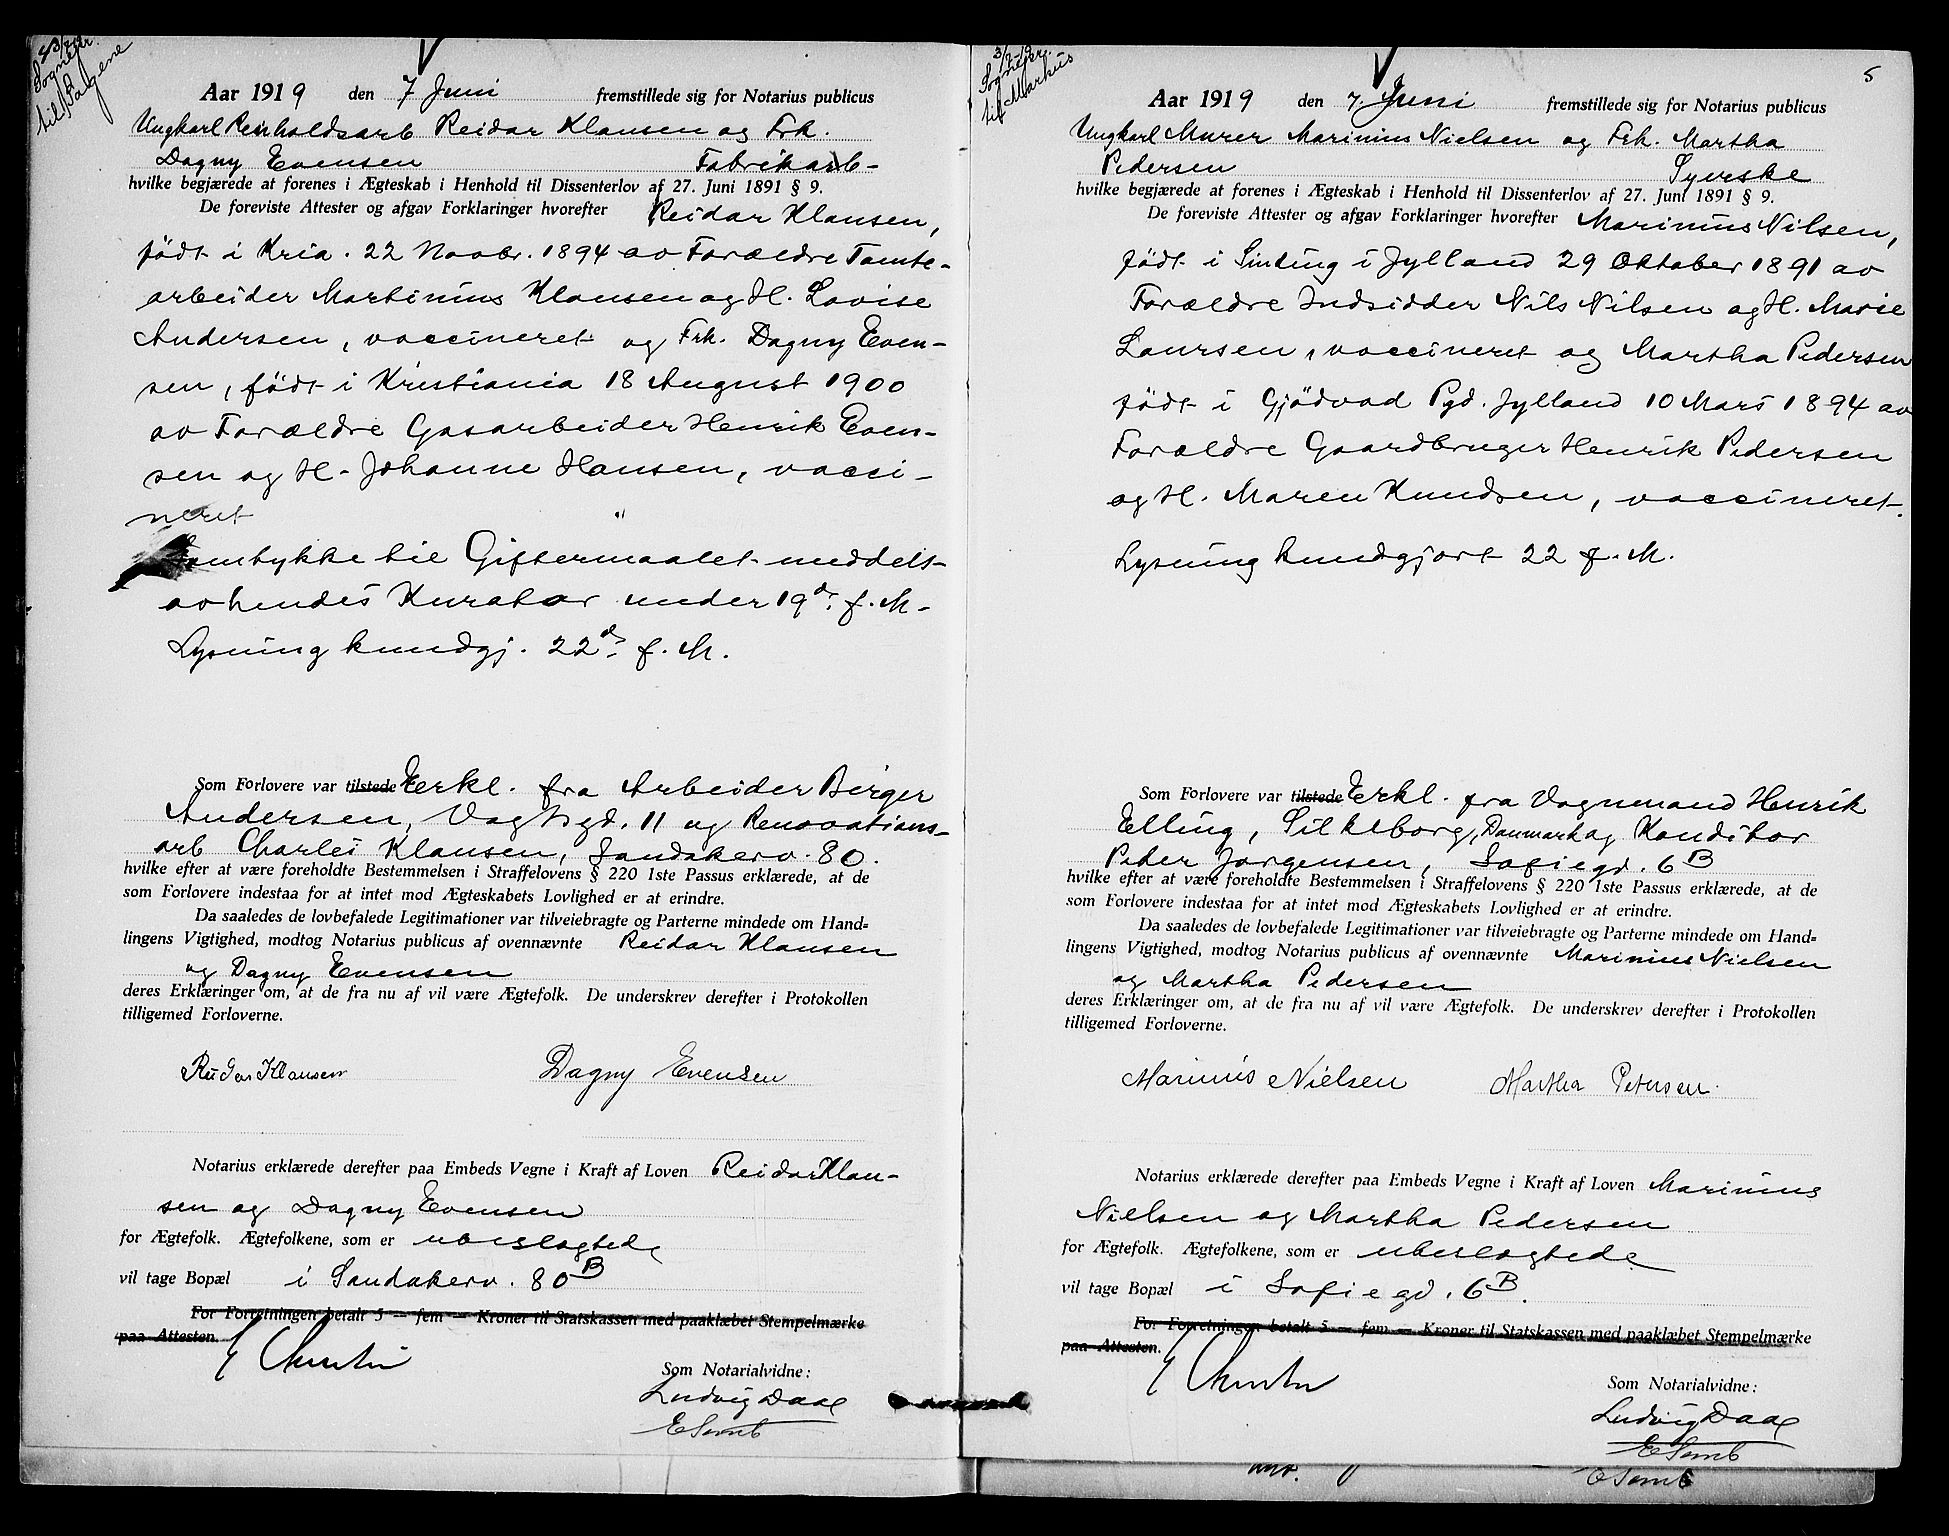 Sogneprt.
til Sagene
Aar 1919 den 7 Juni fremstillede sig for Notarius publicus
Ungkarl Renholdsarb Reidar Klausen og Frk.
Dagny Evensen Fabrikarb-
hvilke begjærede at forenes i Ægteskab i Henhold til Dissenterlov af 27. Juni 1891 § 9.
De foreviste Attester og afgav Forklaringer hvorefter Reidar Klausen,
födt i Kria. 22 Novbr. 1894 av Forældre Tomte-
arbeider Martinius Klausen og H. Lovise
Andersen, vaccineret og Frk. Dagny Even-
sen, födt i Kristiania 18 August 1900
av Forældre Gasarbeider Henrik Even-
sen og H. Johanne Hansen, vacci-
neret
Samtykke til Giftermaalet meddelt
av hendes Kurator under 19d. f. M.
Lysning kundgj. 22d. f. M.
Som Forlovere var tilstede Erkl. fra Arbeider Birger
Andersen, Vogtsgd. 11 og Renovations-
arb Charles Klausen, Sandakerv. 80.
hvilke efter at være foreholdte Bestemmelsen i Straffelovens § 220 1ste Passus erklærede, at de
som Forlovere indestaa for at intet mod Ægteskabets Lovlighed er at erindre.
Da saaledes de lovbefalede Legitimationer var tilveiebragte og Parterne mindede om Hand=
lingens Vigtighed, modtog Notarius publicus af ovennævnte Reidar Klausen
og Dagny Evensen
deres Erklæringer om, at de fra nu af vil være Ægtefolk. De underskrev derefter i Protokollen
tilligemed Forloverne.
Reidar Klausen Dagny Evensen
Notarius erklærede derefter paa Embeds Vegne i Kraft af Loven Reidar Klau-
sen og Dagny Evensen
for Ægtefolk. Ægtefolkene, som er ubeslægtede
vil tage Bopæl i Sandakerv. 80B
For Forretningen betalt 5 — fem — Kroner til Statskassen med paaklæbet Stempelmærke
paa Attesten.
Som Notarialvidne:
Ludvig Daae
E Semb
Sogneprt.
til Markus
5
Aar 1919 den 7 Juni fremstillede sig for Notarius publicus
Ungkarl Murer Marinius Nielsen og Frk. Martha
Pedersen Syerske
hvilke begjærede at forenes i Ægteskab i Henhold til Dissenterlov af 27. Juni 1891 § 9.
De foreviste Attester og afgav Forklaringer hvorefter Marinius Nilsen,
födt i Sinding i Jylland 29 Oktober 1891 av
Forældre Indsidder Nils Nilsen og H. Marie
Laursen, vaccineret og Martha Pedersen
födt i Gjödvad Pgd. Jylland 10 Mars 1894 av
Forældre Gaardbruger Henrik Pedersen
og H. Maren Knudsen, vaccineret.
Lysning kundgjort 22 f. M.
Som Forlovere var tilstede Erkl. fra Vognmand Henrik
Elling, Silkeborg, Danmark og Konditor
Peder Jørgensen, Sofiegd. 6B
hvilke efter at være foreholdte Bestemmelsen i Straffelovens § 220 1ste Passus erklærede, at de
som Forlovere indestaa for at intet mod Ægteskabets Lovlighed er at erindre.
Da saaledes de lovbefalede Legitimationer var tilveiebragte og Parterne mindede om Hand=
lingens Vigtighed, modtog Notarius publicus af ovennævnte Marinius Nielsen
og Martha Pedersen
deres Erklæringer om, at de fra nu af vil være Ægtefolk. De underskrev derefter i Protokollen
tilligemed Forloverne.
Marinus Nielsen Martha Petersen.
Notarius erklærede derefter paa Embeds Vegne i Kraft af Loven Marinius
Nielsen og Martha Pedersen
for Ægtefolk. Ægtefolkene, som er ubeslægtede
vil tage Bopæl i Sofiegd. 6B.
For Forretningen betalt 5 — fem — Kroner til Statskassen med paaklæbet Stempelmærke
paa Attesten.
Som Notarialvidne:
Ludvig Daae
E Semb
E Semb